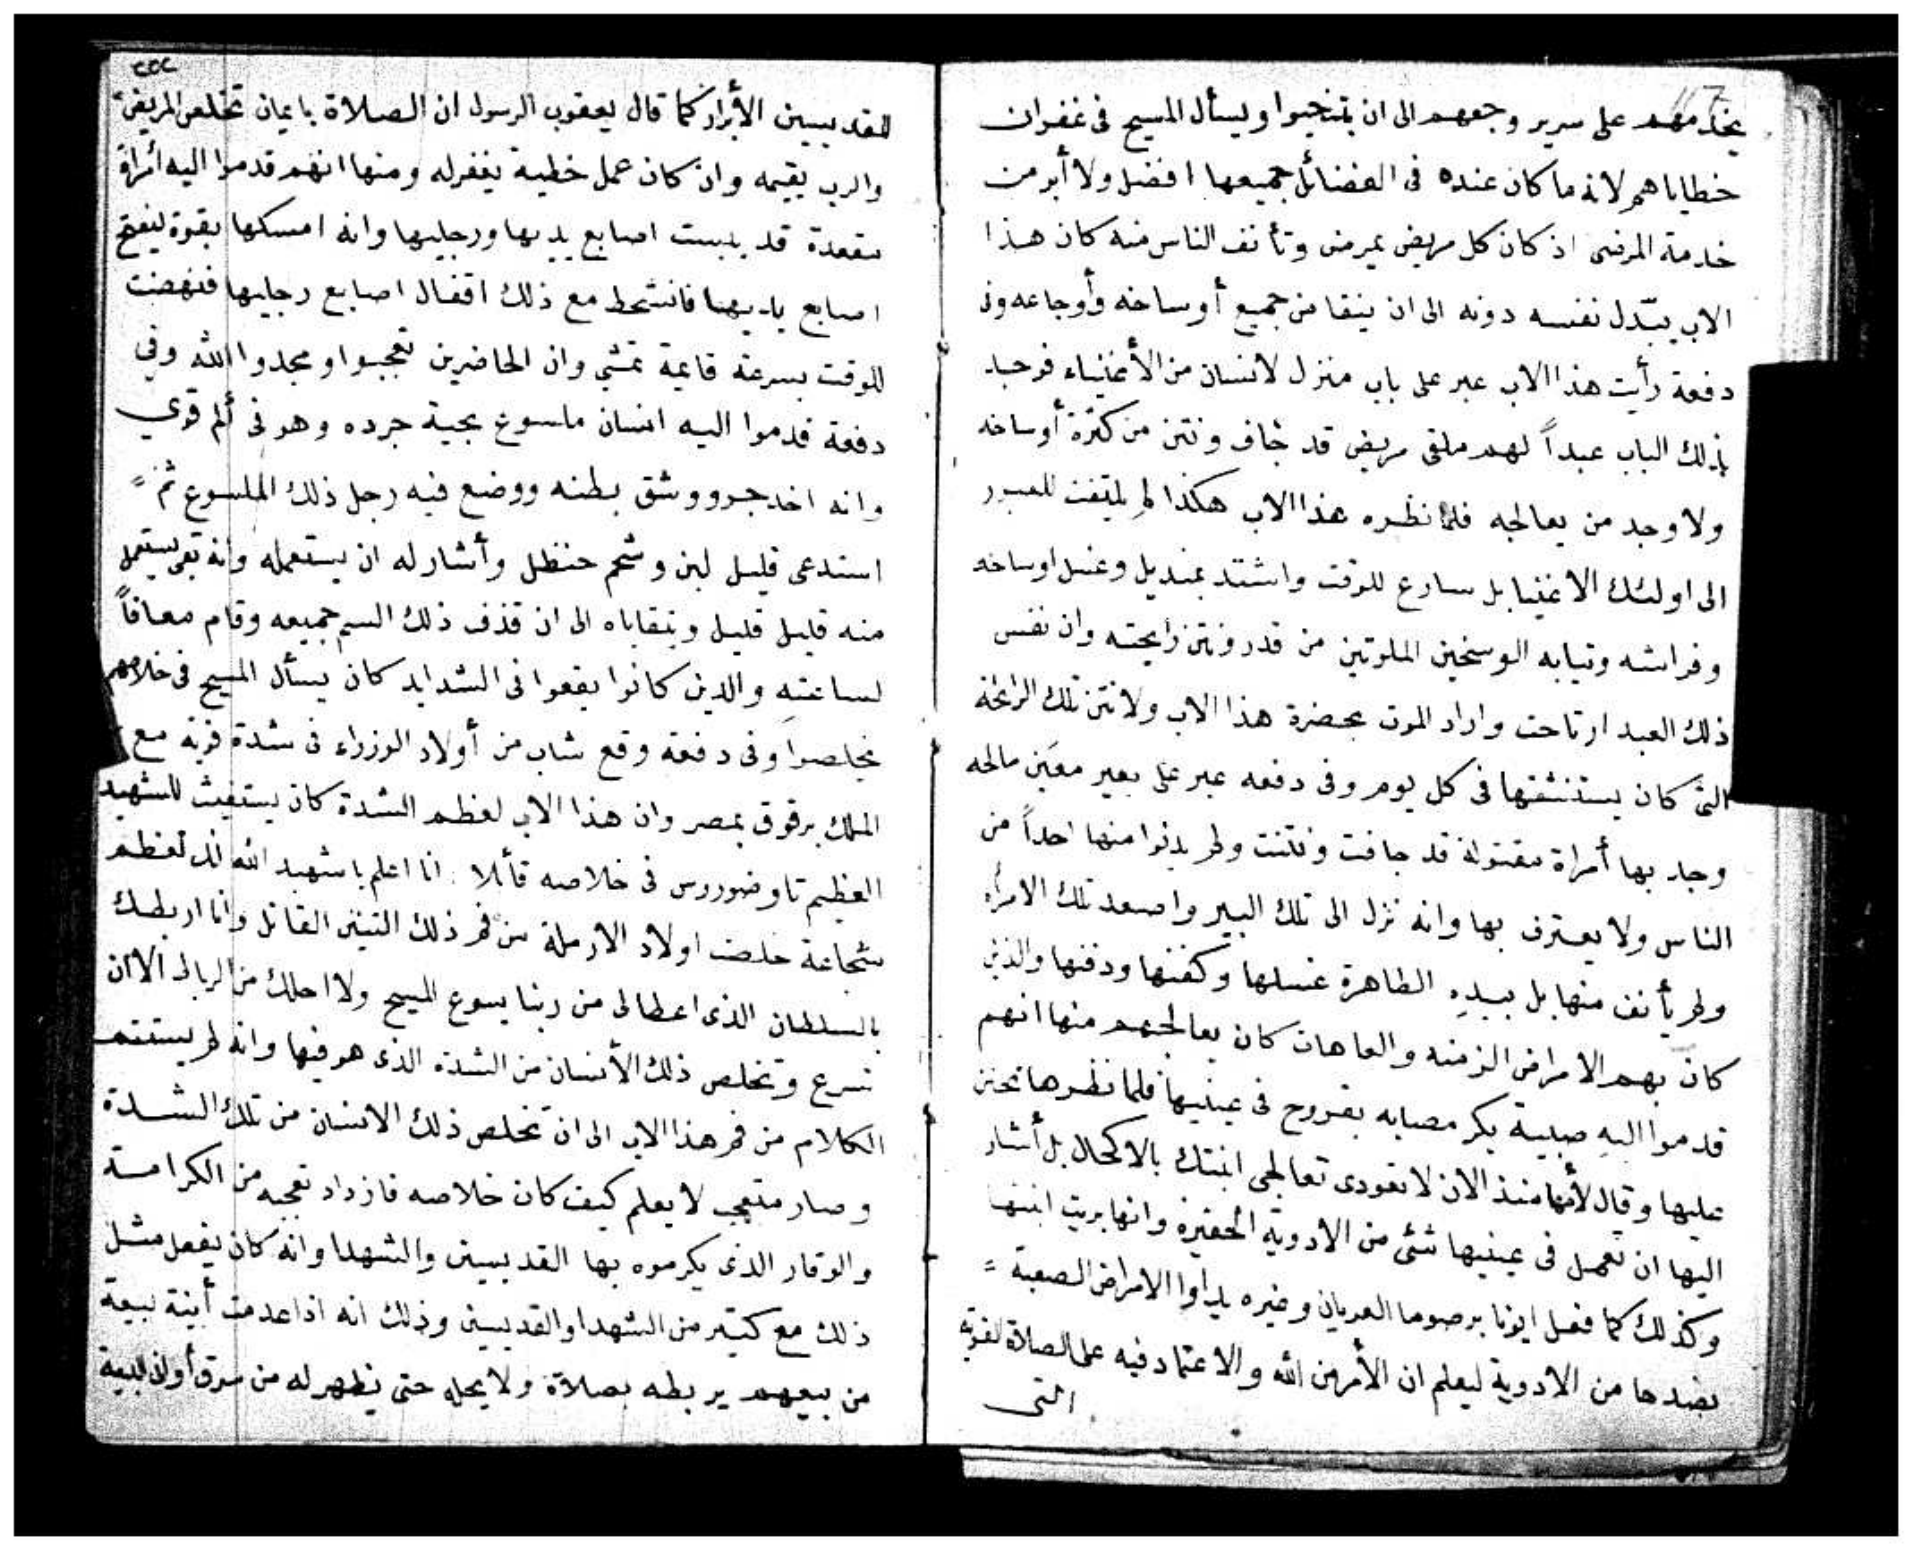 يخدمهم على سرير وجعهم الى ان يتنيحوا ويسأل المسيح فى غفران
خطاياهم لانه ما كان عنده فى الفضائل جميعها افضل ولا أبر من
خدمة المرضى اذ كان كل مريض يمرض وتأنف الناس منه كان هذا
الاب يبّدل نفسه دونه الى ان ينقا من جميع أوساخه وأوجاعه وفى
دفعة رأيت هذا الاب عبر على باب منزل لانسان من الأغنياء فوجد
بذلك الباب عبداً لهم ملقى مريض قد جاف ونتن من كثرة أوساخه
ولا وجد من يعالجه فلما نظره هذا الاب هكذا لم يلتفت للعبور
الى اولئك الاغنيا بل سارع للوقت واشتد بمنديل وغسل اوساخه
وفراشه وتيابه الوسخين الملوتين من قدر ونتن رايحته وان نفس
ذلك العبد ارتاحت واراد الموت بحضرة هذا الاب ولا نتن تلك الرائحة
التى كان يستنشقها فى كل يوم وفى دفعه عبر على بعير معين مالحه
وجد بها أمراة مقتولة قد جافت ونتنت ولم يدنوا منها احداً من
الناس ولا يعترف بها وانه نزل الى تلك البير واصعد تلك الامرأه
ولم يأنف منها بل بيده الطاهرة غسلها وكفنها ودفنها والذين
كان بهم الامراض الزمنه والعاهات كان يعالجهم منها انهم
قدموا اليه صبية بكر مصابه بقروح فى عينيها فلما نظرها تحنن
عليها وقال لأمها منذ الان لا تعودى تعالجى ابنتك بالاكحال بل أشار
اليها ان تعمل فى عينيها شئى من الادوية الحقيرة وانها بريت ابنتها
وكذلك كما فعل ابونا برصوما العريان وغيره يداوا الامراض الصعبة =
بضدها من الادوية ليعلم ان الأمر من الله والاعتماد فيه على الصلاة القوية
التى
٢٢٢
للقديسين الأبرار كما قال يعقوب الرسول ان الصلاة بايمان تخلص المريض
والرب يقيمه وان كان عمل خطية يغفر له ومنها انهم قدموا اليه أمراة
مقعدة قد يبست اصابع يديها ورجليها وانه امسكها بقوة ليفتح
اصابع يديها فانشحط مع ذلك اقفال اصابع رجليها فنهضت
للوقت بسرعة قايمة تمشي وان الحاضرين تعجبوا ومجدوا الله وفي
دفعة قدموا اليه انسان ملسوع بحية جرده وهو فى ألم قوي
وانه اخد جرو وشق بطنه ووضع فيه رجل ذلك الملسوع ثم =
استدعى قليل لبن وشحم حنظل وأشار له ان يستعمله وانه بقى يستعمل
منه قليل قليل ويتقاياه الى ان قذف ذلك السم جميعه وقام معافاً
لساعته والذين كانوا يقعوا فى الشدايد كان يسأل المسيح فى خلاصهم
فيخلصوا وفى دفعة وقع شاب من أولاد الوزراء فى شدة قويه مع
الملك برقوق بمصر وان هذا الاب لعظم الشدة كان يستغيث للشهيد
العظيم تاوضوروس فى خلاصه قائلا انا اعلم يا شهيد الله لعظم
شجاعة خلصت اولاد الارملة من فم ذلك التنين القاتل وانا اربطك
بالسلطان الذى اعطا لى من ربنا يسوع المسيح ولا احلك من الرباط الا ان
تسرع وتخلص ذلك الأنسان من الشدة الذى هو فيها وانه لم يستتم
الكلام من فم هذا الاب الى ان تخلص ذلك الانسان من تلك الشدة
وصار متعجب لا يعلم كيف كان خلاصه فازداد تعجبه من الكرامة
والوقار الذى يكرموه بها القديسين والشهدا وانه كان يفعل مثل
ذلك مع كتير من الشهدا والقديسين وذلك انه اذا عدمت أنية لبيعة
من بيعهم يربطه بصلاة ولا يحله حتى يظهر له من سرق أوانى البيعة